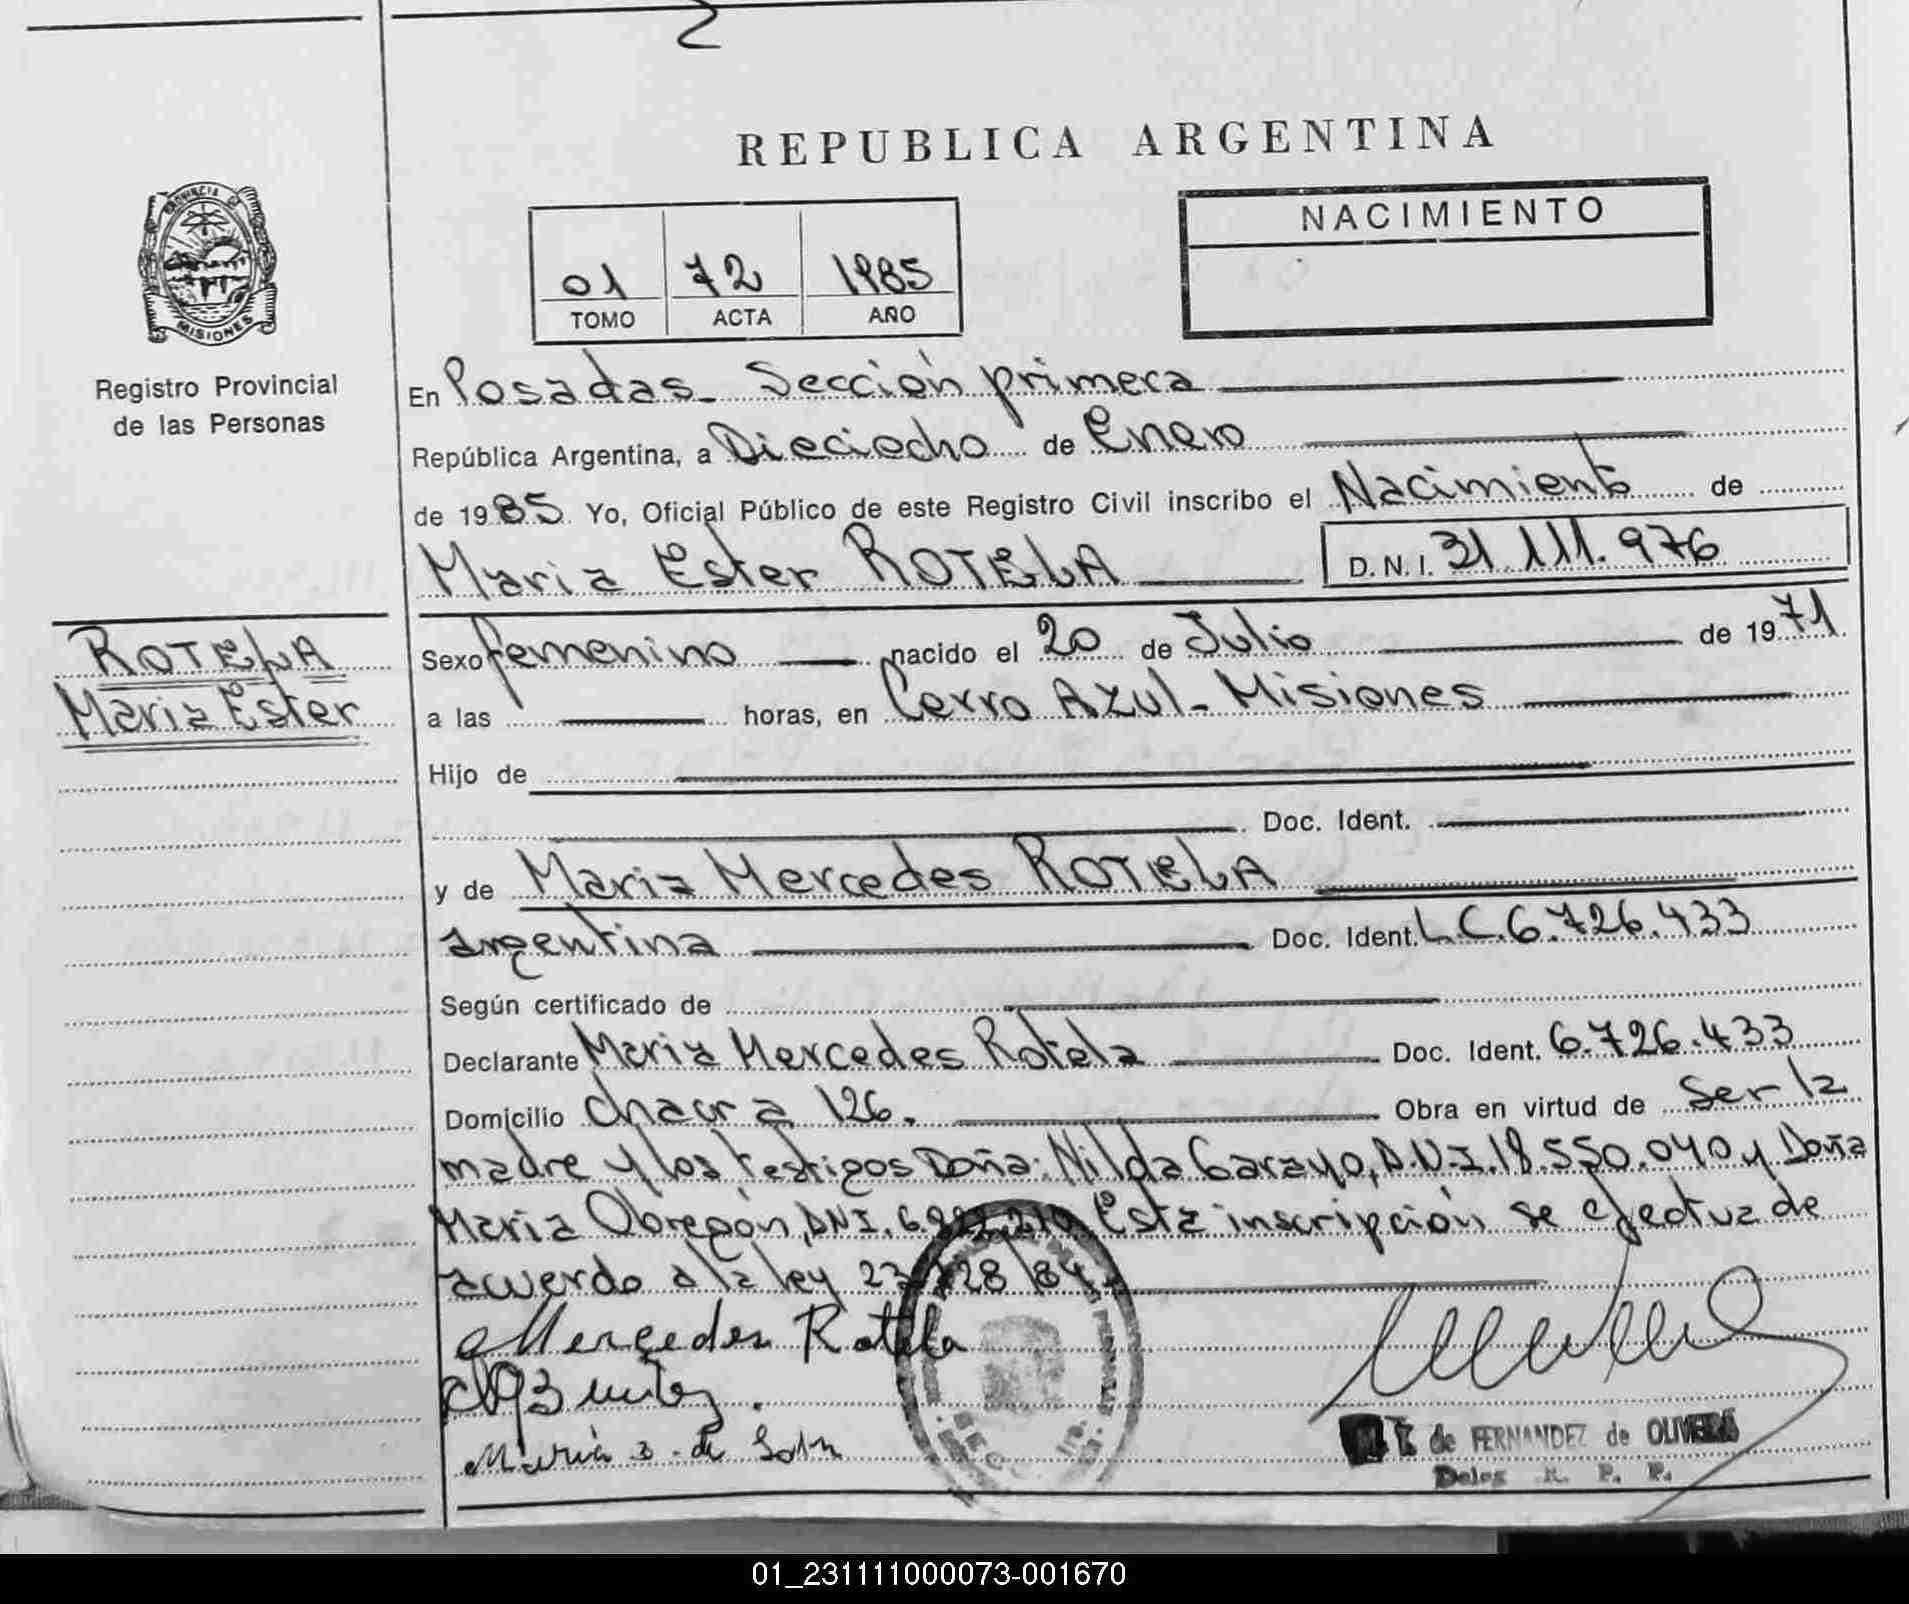 REPUBLICA ARGENTINA
PROVINCIA DE
MISIONES
Registro Provincial
de las Personas
01 72 1985
TOMO ACTA AÑO
NACIMIENTO
En Posadas - Sección primera
República Argentina, a Dieciocho de Enero
de 1985 Yo, Oficial Público de este Registro Civil inscribo el Nacimiento de
Maria Ester ROTELA D.N.I. 31.111.976
ROTELA
Maria Ester
Sexo femenino nacido el 20 de Julio de 1971
a las horas, en Cerro Azul - Misiones
Hijo de
Doc. Ident.
y de Maria Mercedes ROTELA
argentina Doc. Ident. L.C. 6.726.433
Según certificado de
Declarante Maria Mercedes Rotela Doc. Ident. 6.726.433
Domicilio chacra 126. Obra en virtud de ser la
madre y los testigos Doña: Nilda Garayo, D.N.I. 18.550.040 y Doña
Maria Obregón, DNI. Esta inscripción se efectua de
acuerdo a la ley 23.128/84
Mercedes Rotela
Maria
de FERNANDEZ de OLIVEIRA
Deleg. R. P. P.
01_231111000073-001670